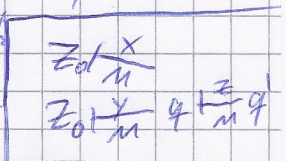 Z₀ ⊢ x/M
Z₀ ⊢ y/M q ⊢ z/M q'